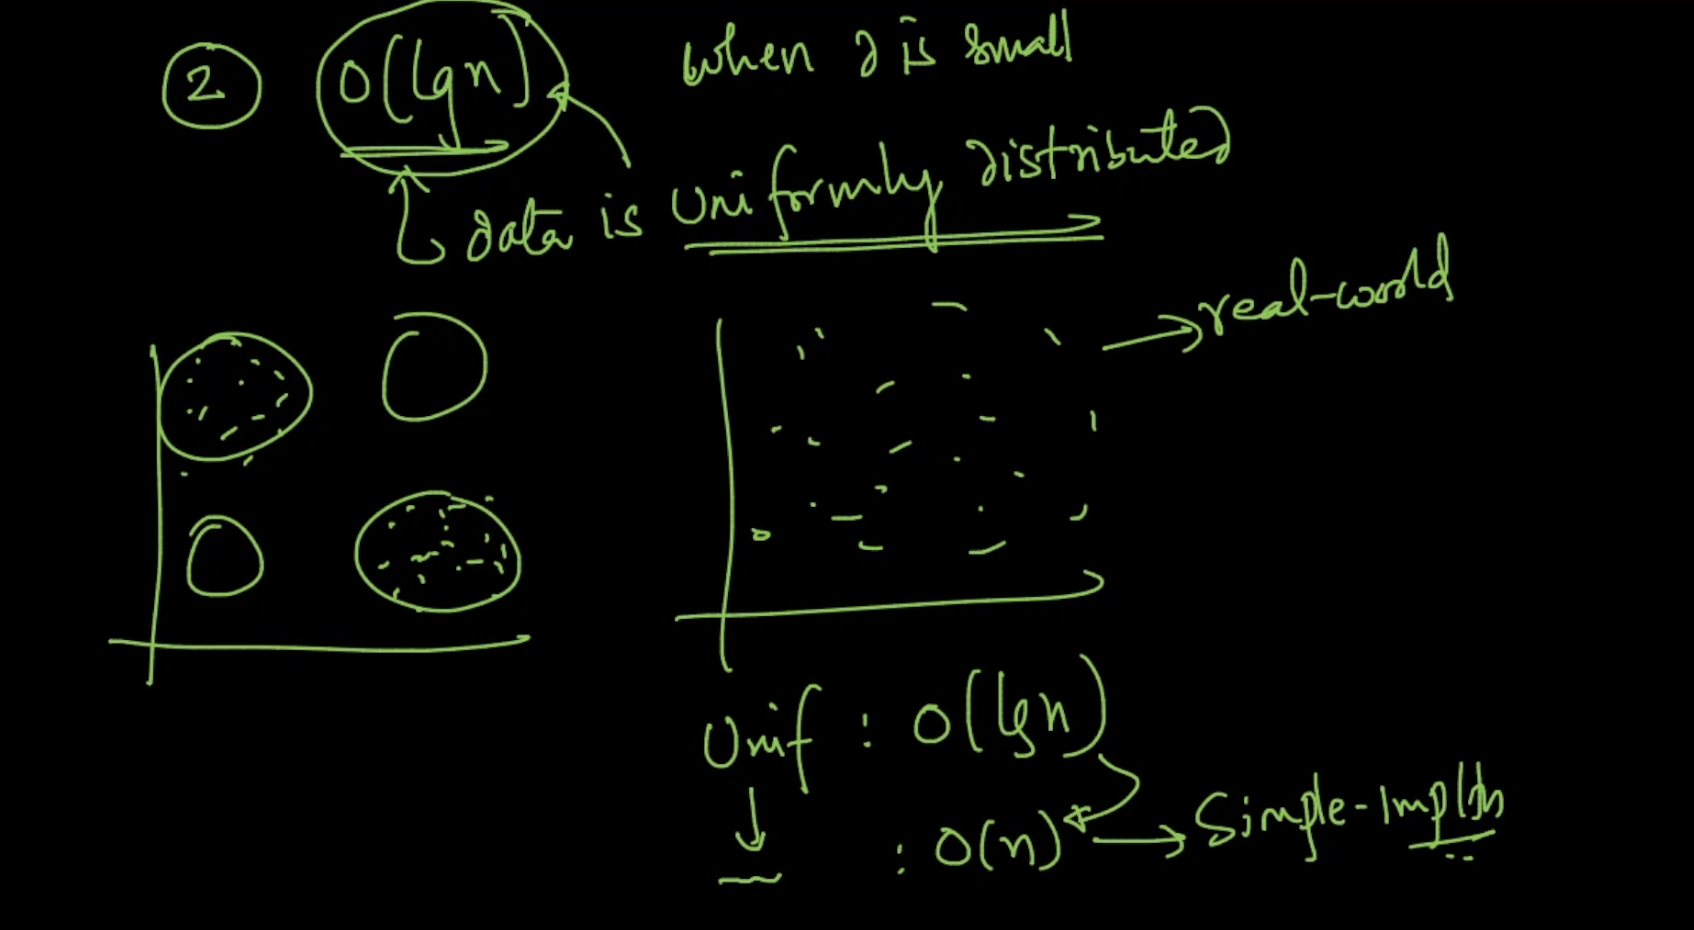 2 O(lgn) when d is small
data is uniformly distributed
→ real-world
Unif : O(lgn)
: O(n) → Simple-Impltn